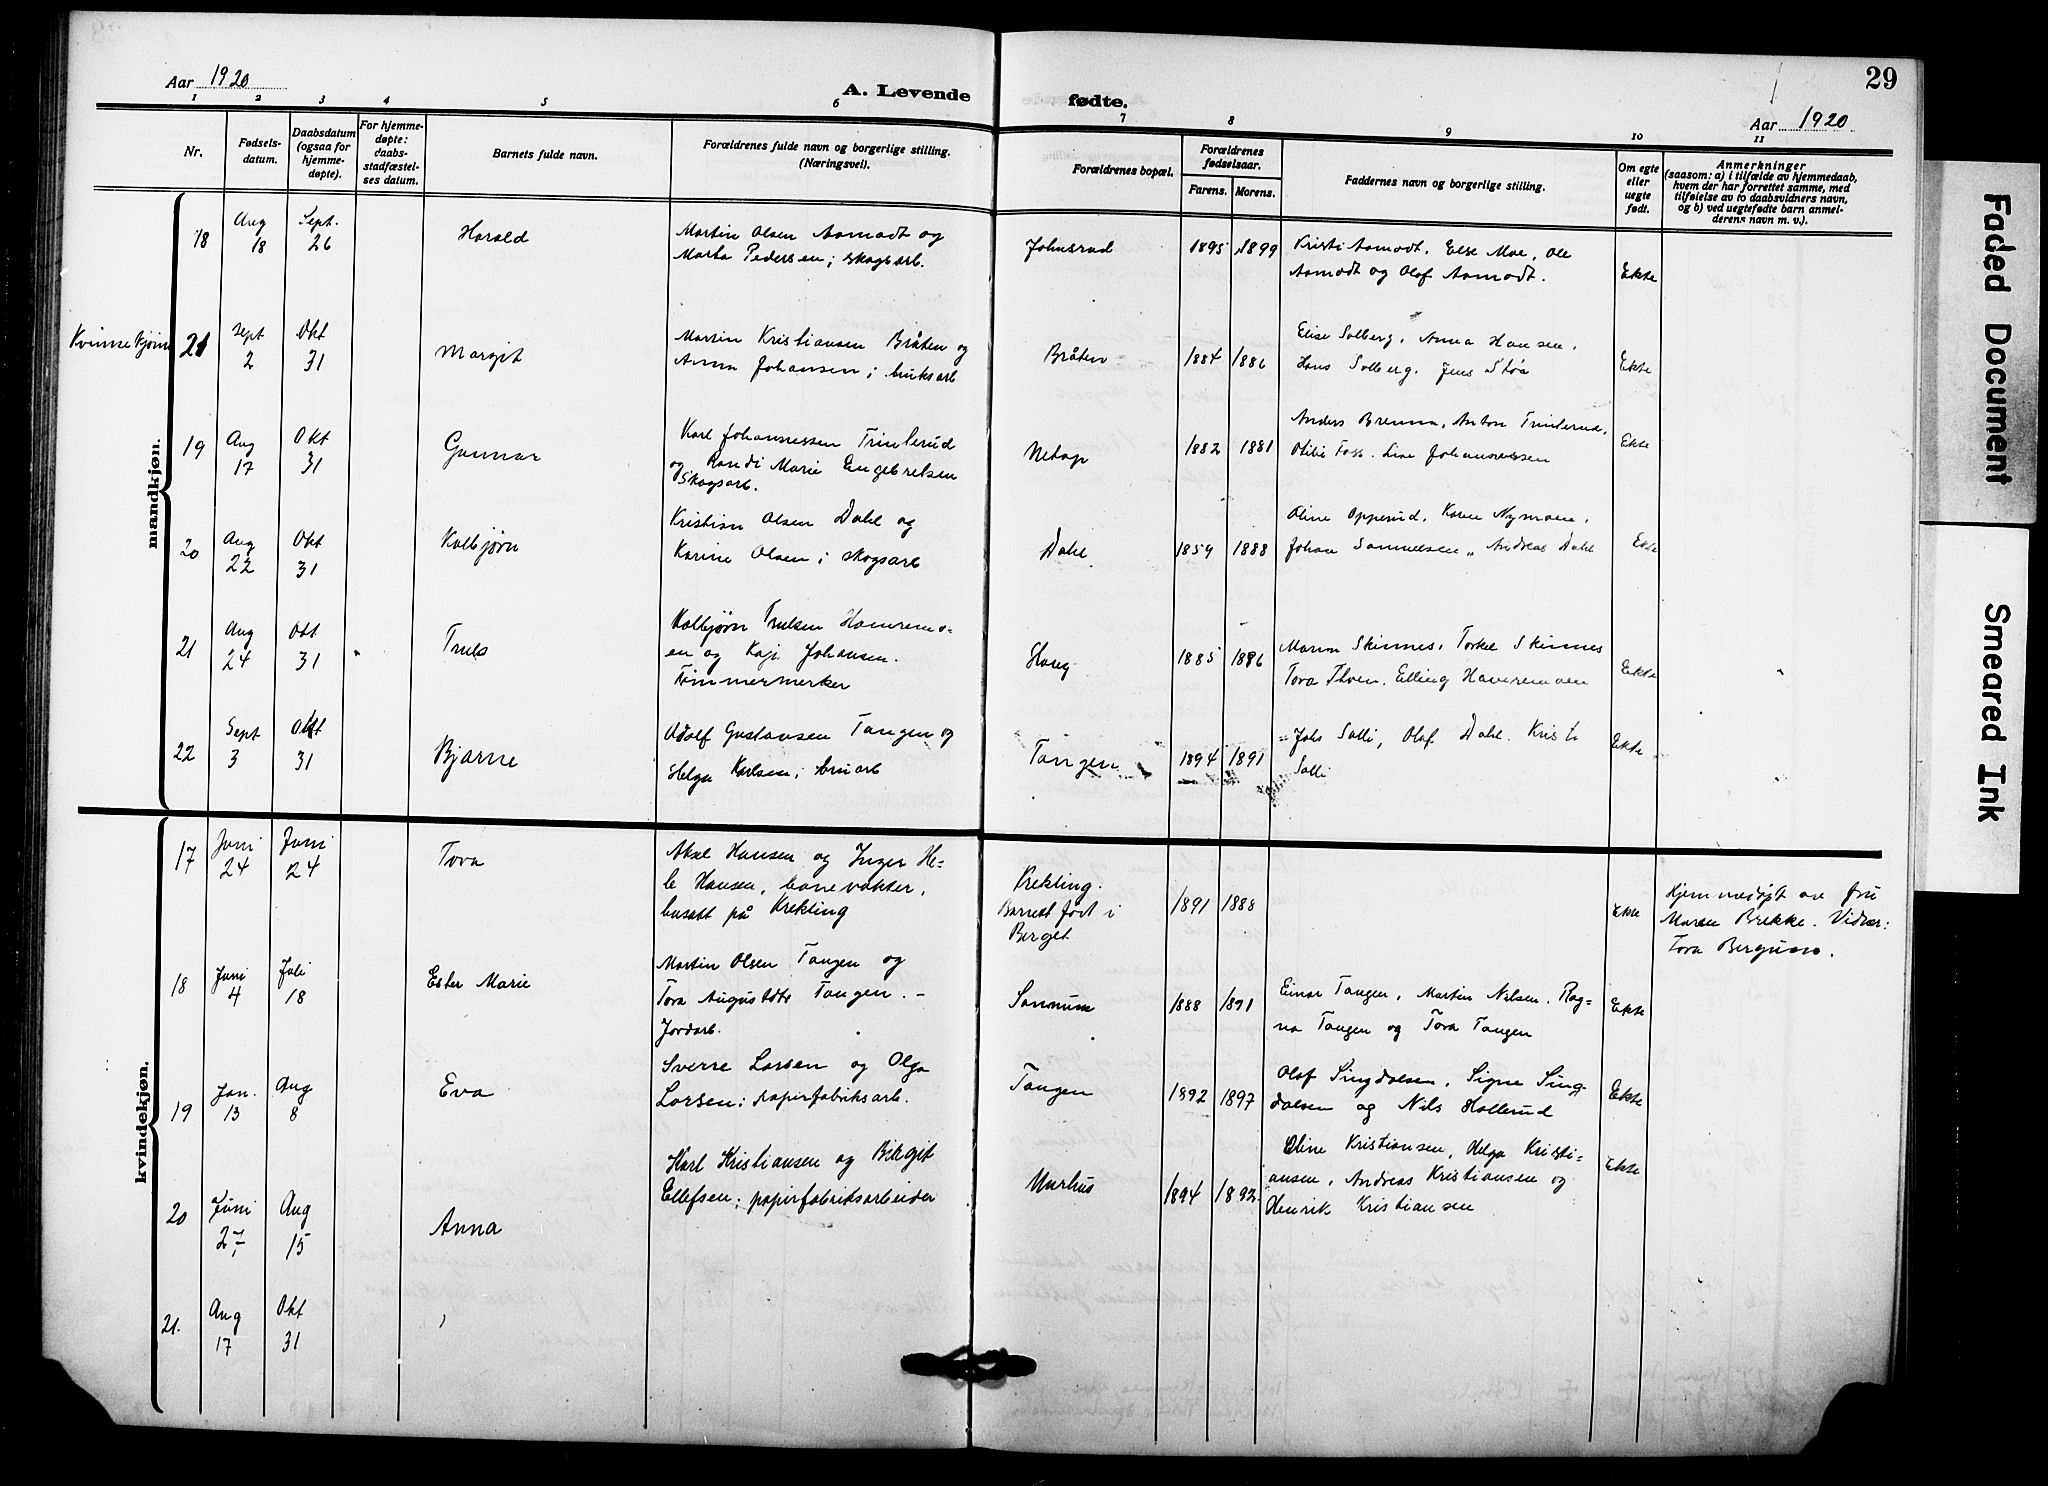 Aar 1920
A. Levende fødte.
29
Aar 1920
1 2 3 4 5 6 7 8 9 10 11
Nr.
Fødsels-
datum.
Daabsdatum
(ogsaa for
hjemme-
døpte).
For hjemme-
døpte:
daabs-
stadfæstel-
ses datum.
Barnets fulde navn.
Forældrenes fulde navn og borgerlige stilling.
(Næringsvei).
Forældrenes bopæl.
Forældrenes
fødselsaar.
Farens. Morens.
Faddernes navn og borgerlige stilling.
Om egte
eller
uegte
født.
Anmerkninger
(saasom: a) i tilfælde av hjemmedaab,
hvem der har forrettet samme, med
tilføielse av to daabsvidners navn,
og b) ved uegtefødte barn anmel-
derens navn m. v.).
mandkjøn.
18
Aug
18
Sept.
26
Harald
Martin Olsen Aamodt og
Marta Pedersen; skogsarb.
Johnsrud
1895 1899
Kristi Aamodt. Else Moe, Ole
Aamodt og Olaf Aamodt.
Ekte
Kvinnekjønn
21
Sept
2
Okt
31
Margit
Martin Kristiansen Bråten og
Anna Johansen; bruksarb
Bråten
1884 1886
Elise Solberg, Anna Hansen,
Hans Solberg. Jens Støa
Ekte
19
Aug
17
Okt
31
Gunnar
Karl Johannessen Trinterud
og Randi Marie Engebretsen
Skogsarb.
Netop
1882 1881
Anders Brenna, Anton Trinterud,
Otilie Foss. Lise Johannessen
Ekte
20
Aug
22
Okt
31
Kolbjørn
Kristian Olsen Dahl og
Karine Olsen; skogsarb
Dahl
1859 1888
Oline Opperud, Karen Nymoen,
Johan Samuelsen, Andreas Dahl
Ekte
21
Aug
24
Okt
31
Truls
Kolbjørn Trulsen Havremo-
en og Kaja Johansen.
Tømmermerker
Haug
1885 1886
Maren Skinnes, Torkel Skinnes
Tora Thoen, Elling Havremoen
Ekte
22
Sept
3
Okt
31
Bjarne
Adolf Gustavsen Tangen og
Helga Karlsen; bruarb
Tangen
1894 1891
Johs Solli, Olaf Dahl. Kristi
Solli
Ekte
kvindekjøn.
17
Juni
24
Juni
24
Tora
Aksel Hansen og Inger He-
le Hansen, banevokter,
busatt på Krekling
Krekling.
Barnet født i
Berget
1891 1888
Ekte
Hjemmedøpt av fru
Maren Brekke. Vidner:
Tora Bergum.
18
Juni
4
Juli
18
Ester Marie
Martin Olsen Tangen og
Tora Augustdtr Tangen. –
Jordarb.
Sonnum
1888 1891
Einar Tangen, Martin Nilsen. Rag-
na Tangen og Tora Tangen
Ekte
19
Jan.
13
Aug
8
Eva
Sverre Larsen og Olga
Larsen; papirfabriksarb.
Tangen
1892 1897
Olaf Singdalsen, Signe Sing-
dalsen og Nils Hallerud
Ekte
20
Juni
27
Aug
15
Anna
Karl Kristiansen og Birgit
Ellefsen; papirfabriksarbeider
Murhus
1894 1892
Eline Kristiansen, Helga Kristi-
ansen, Andreas Kristiansen og
Henrik Kristiansen
Ekte
21.
Aug
17
Okt
31
Faded Document
Smeared Ink